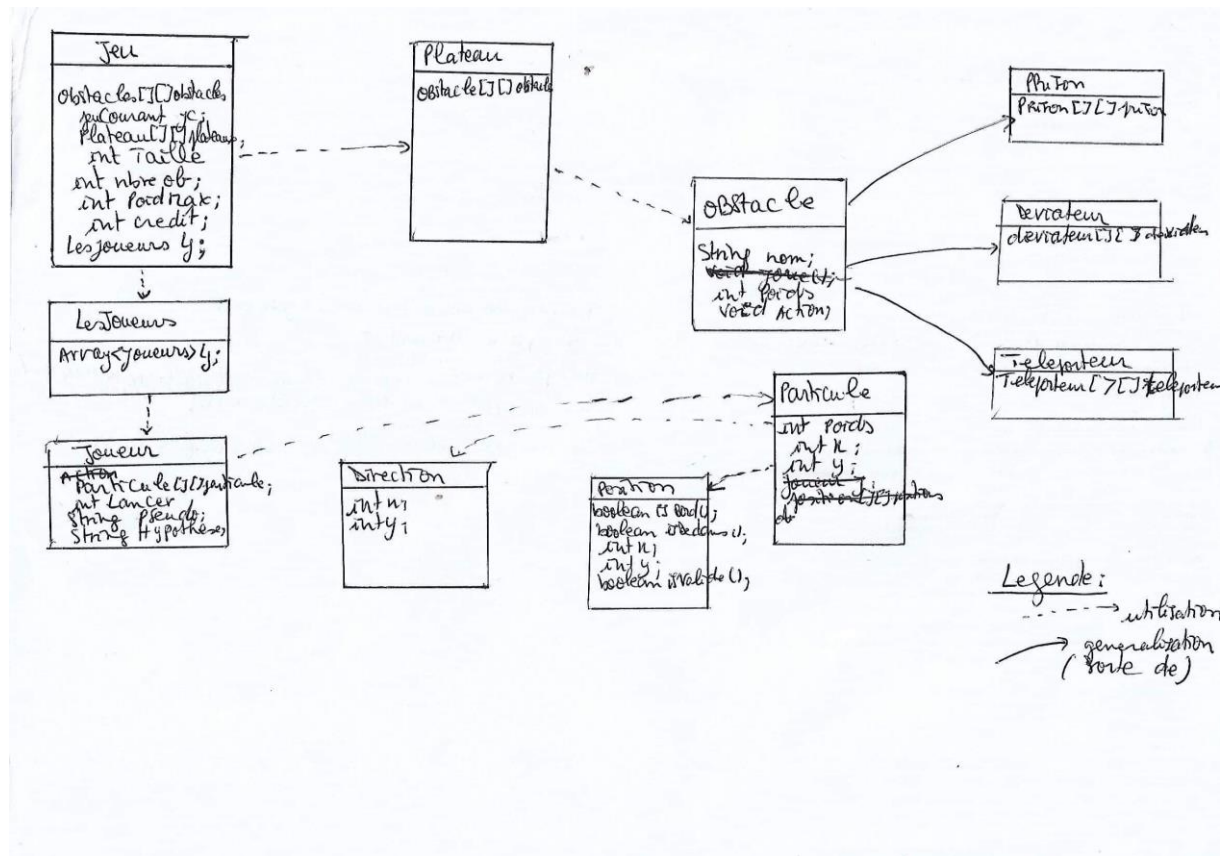 Jeu
Obstacles[][]obstacles
jeuCourant jc;
Plateau[][]plateaux;
int Taille
int nbre ob;
int PoidMax;
int credit;
LesJoueurs lj;
Plateau
Obstacle[][]obstacle
Obstacle
String nom;
void joue();
int Poids
void Action;
Priton
Priton[][]priton
Deviateur
deviateur[][]deviateur
Teleporteur
Teleporteur[][]teleporteur
LesJoueurs
Array<Joueurs>lj;
Joueur
Action
Particule[][]particule;
int Lancer
String Pseudo;
String Hypothese;
Direction
int x;
int y;
Position
boolean isBord();
boolean isDedans();
int x;
int y;
boolean isValide();
Particule
int Poids
int x;
int y;
joueur j;
position[][]positions
ob
Legende:
utilisation
generalisation
(sorte de)